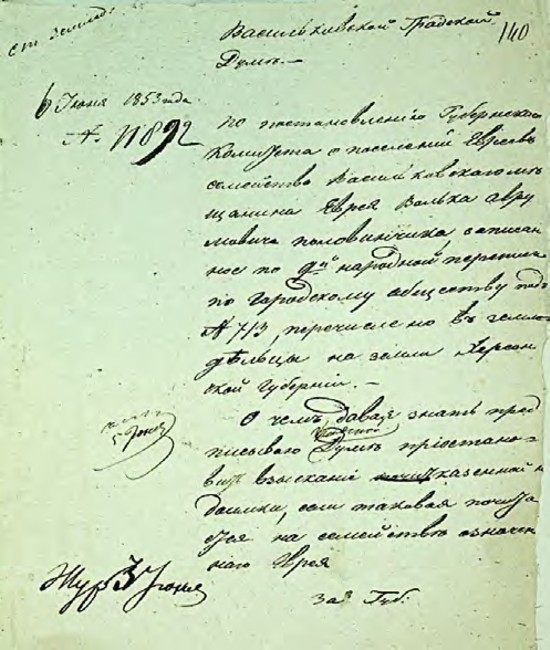 Васильковской Градской
140
Думѣ.—
6 Іюня 1853 года
№ 11892
По постановленію Губернскаго
Комитета о поселеніи Евреевъ
семейство Васильковскаго мѣ
щанина Еврея Волька Авру
мовича Половинчика записан
ное по 9й народной переписи
по городскому обществу подъ
№ 713, перечислено въ земле
дѣльцы на земли Херсон
ской Губерніи.—
О чемъ давая знать пред
писываю Думѣ пріостано
вить взысканіе казенной не
доимки, если таковая почита
ется на семействѣ означен
наго Еврея
5 Іюня
Жур 3 Іюня
За Губ: